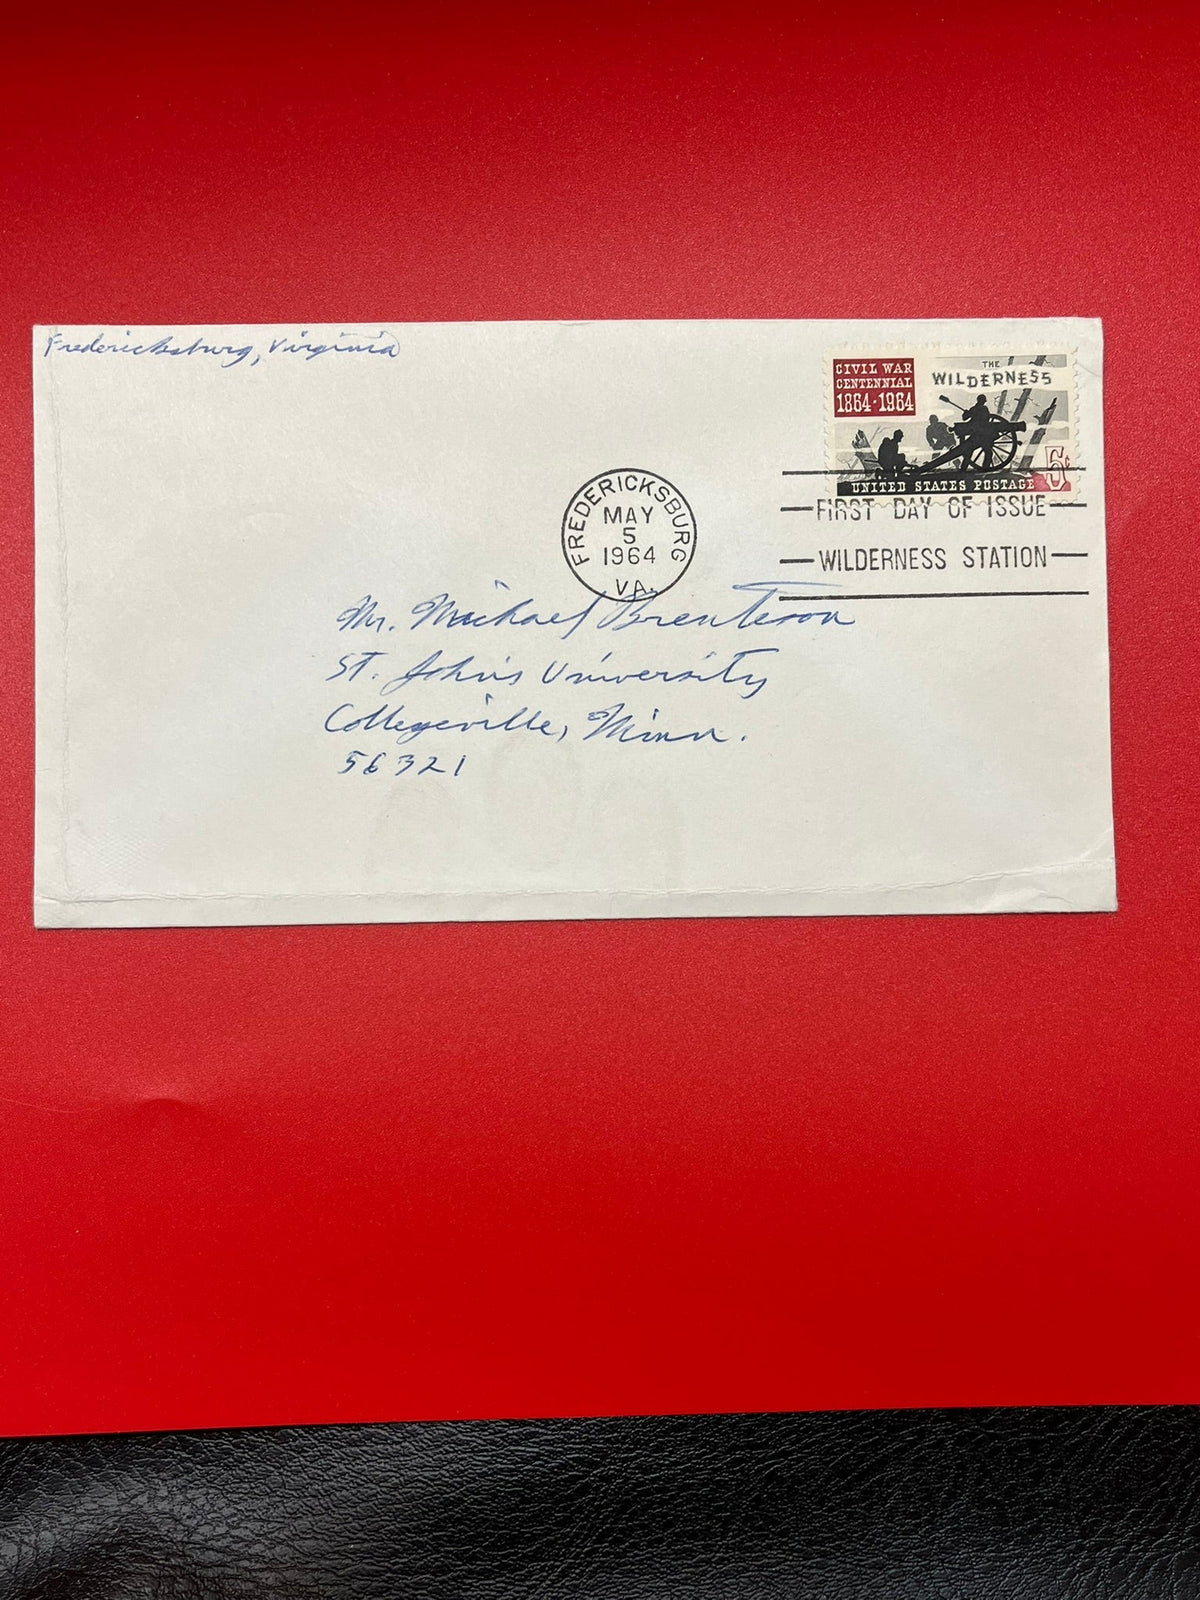 Fredericksburg, Virginia
CIVIL WAR
CENTENNIAL
1864-1964
THE
WILDERNESS
5¢
UNITED STATES POSTAGE
FREDERICKSBURG
MAY
5
1964
VA.
FIRST DAY OF ISSUE
WILDERNESS STATION
Mr. Michael Brenteson
St. John's University
Collegeville, Minn.
56321